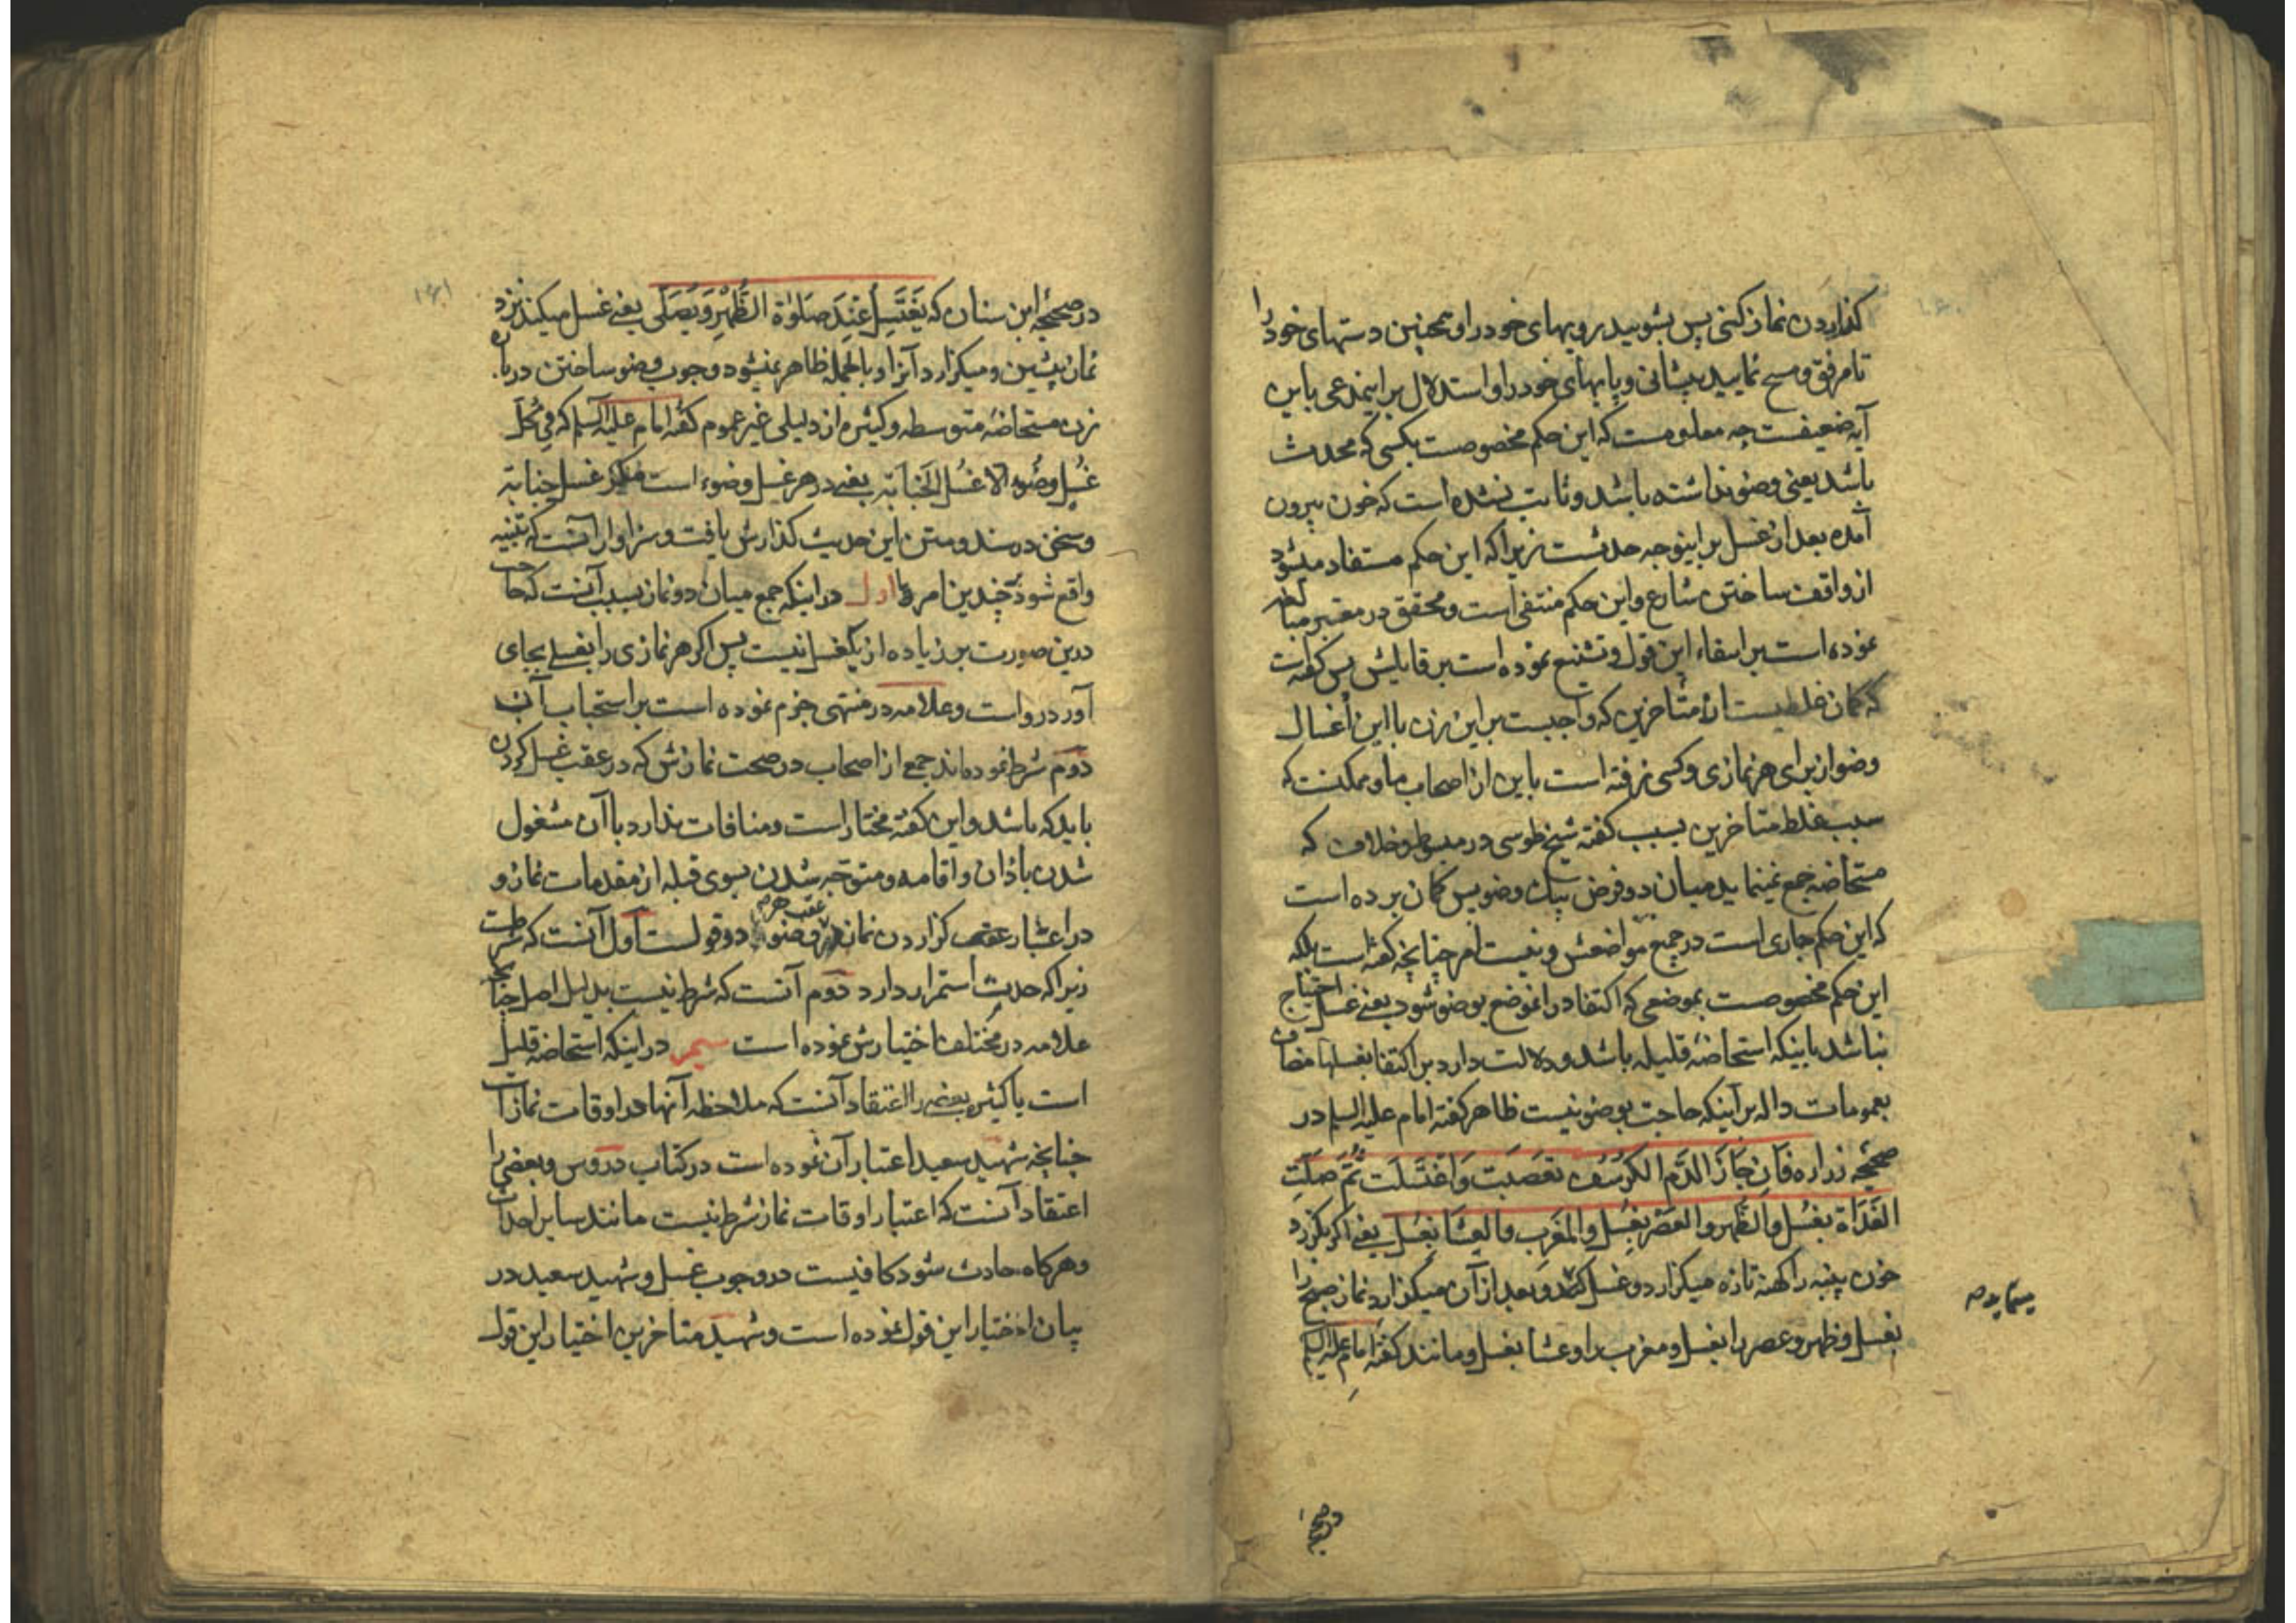 گذاردن نماز کنی پس بشویید رویهای خود را و همچنین دستهای خود را
تا مرفق و مسح نمایید پیشانی و پایهای خود را و استدلال بر این مدعی باین
آیه ضعیفست چه معلومست که این حکم مخصوصست بکسی که محدث
باشد یعنی وضو نداشته باشد و ثابت نشده است که خون بیرون
آمده بعد از غسل بر اینوجه حدثست زیرا که این حکم مستفاد میشود
از واقف ساختن شارع و این حکم منتفی است و محقق در معتبر مبالغه
نموده است بر انتفاء این قول و تشنیع نموده است بر قایلش پس گفته است
که گمان غلطیست از متأخرین که واجبست بر این زن با این اغسال
وضو از برای هر نمازی و کسی نرفته است باین از اصحاب ما و ممکنست که
سبب غلط متأخرین بسبب گفته شیخ طوسی در مبسوط و خلاف که
مستحاضه جمع نمینماید میان دو فرض بیک وضو پس گمان برده است
که این حکم جاری است در جمیع مواضعش و نیست امر چنانچه گفته است بلکه
این حکم مخصوصست بموضعی که اکتفا در انموضع بوضو شود یعنی غسل احتیاج
نباشد باینکه استحاضه قلیله باشد و دلالت دارد بر اکتفا بغسلها مضاف
بعمومات داله بر اینکه حاجت بوضو نیست ظاهر گفته امام علیه السلم در
صحیحه زراره فَاِن جَازَ الدَّمُ الکُرسُفَ تَعَصَّبَت وَاغتَسَلَت ثُمَّ صَلَّتِ
الغَدَاةَ بِغُسلٍ وَالظُّهرَ وَالعَصرَ بِغُسلٍ وَالمَغرِبَ وَالعِشَا بِغُسلٍ یعنی اگر بگذرد
خون پنبه را کهنه تازه میگزارد و غسل کند و بعد از آن میگزارد نماز صبح را
بغسل و ظهر و عصر را بغسل و مغرب را و عشا بغسل و مانند گفته امام علیه السلم
مینماید صح
در صحیحه
در صحیحه ابن سنان که یَغتَسِلُ عِندَ صَلوٰةِ الظُّهرِ وَیُصَلّی یعنی غسل میکند نزد
نماز پیشین و میگزارد آنرا و بالجمله ظاهر نمیشود وجوب وضو ساختن در باره
زن مستحاضه متوسطه و کثیره از دلیلی غیر عموم گفته امام علیه السلم که فِی کُلِّ
غُسلٍ وضُوء الا غُسل الجَنَابَة یعنی در هر غسل وضوء است مگر غسل جنابة
و سخن در سند و متن این حدیث گذارش یافت و سزاوار آنست که تنبیه
واقع شود بر چندین امر ها اول در اینکه جمع میان دو نماز بسبب آنست که حاجت
درین صورت بر زیاده از یکغسل نیست پس اگر هر نمازی را بغسلی بجای
آورد رواست و علامه در منتهی جزم نموده است بر استحباب آن
دوم شرط نموده‌اند جمعی از اصحاب در صحت نمازش که در عقب غسل کردن
باید که باشد و این گفته مختار است و منافات ندارد با آن مشغول
شدن باذان و اقامه و متوجه شدن بسوی قبله از مقدمات نماز و
در اعتبار عقب گزاردن نماز وضو دو قولست اول آنست که شرطست
عقب هر
زیرا که حدث استمرار دارد دوم آنست که شرط نیست بدلیل اصل چنانچه
علامه در مختلف اختیارش نموده است سیم در اینکه استحاضه قلیل
است یا کثیر بعضی را اعتقاد آنست که ملاحظه آنها در اوقات نماز است
چنانچه شهید سعید اعتبار آن نموده است در کتاب دروس و بعضی را
اعتقاد آنست که اعتبار اوقات نماز شرط نیست مانند سایر احداث
و هر گاه حادث شود کافیست در وجوب غسل و شهید سعید در
بیان اختیار این قول نموده است و شهید متأخرین اختیار این قول